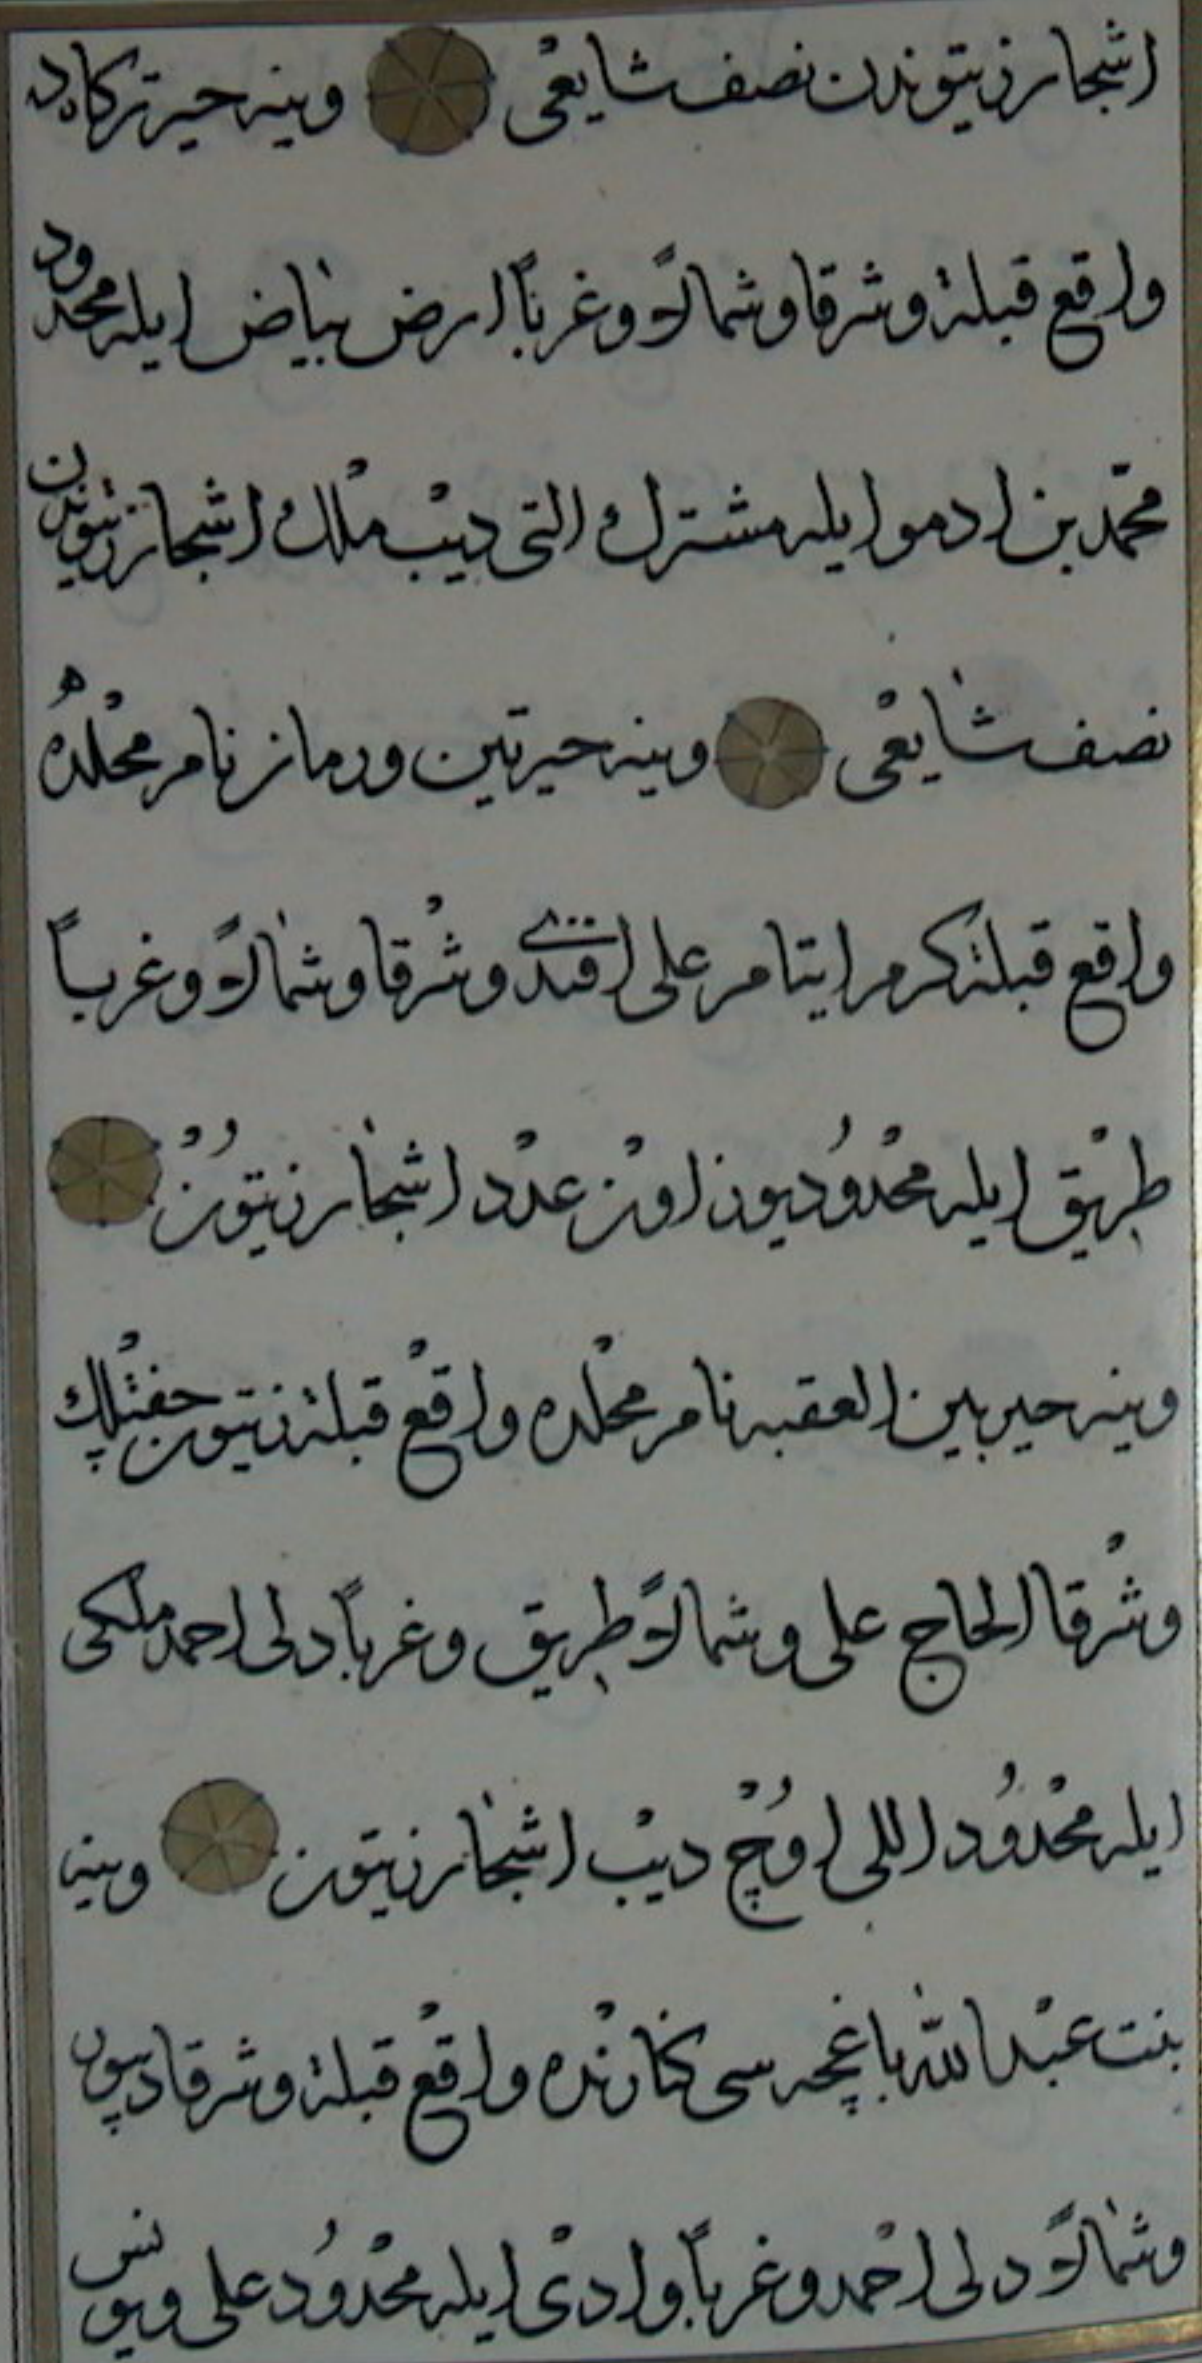 اشجار زيتوندن نصف شايعى وينه حير تركاده
واقع قبلةً وشرقا وشمالاً وغرباً ارض بياض ايله محدود
محمد بن ادمو ايله مشترك التى ديب ملك اشجار زيتوندن
نصف شايعى وينه حير تين ورمان نام محلده
واقع قبلةً كرم ايتام على افندى وشرقا وشمالاً وغرباً
طريق ايله محدود يوز اون عدد اشجار زيتون
وينه حير بين العقبه نام محلده واقع قبلةً زيتون جفتلك
وشرقا الحاج على وشمالاً طريق وغرباً دلى احمد ملكى
ايله محدود اللى اوچ ديب اشجار زيتون وينه
بنت عبد الله باغچه سى كنارنده واقع قبلةً وشرقا
وشمالاً دلى احمد وغرباً وادى ايله محدود على ويونس